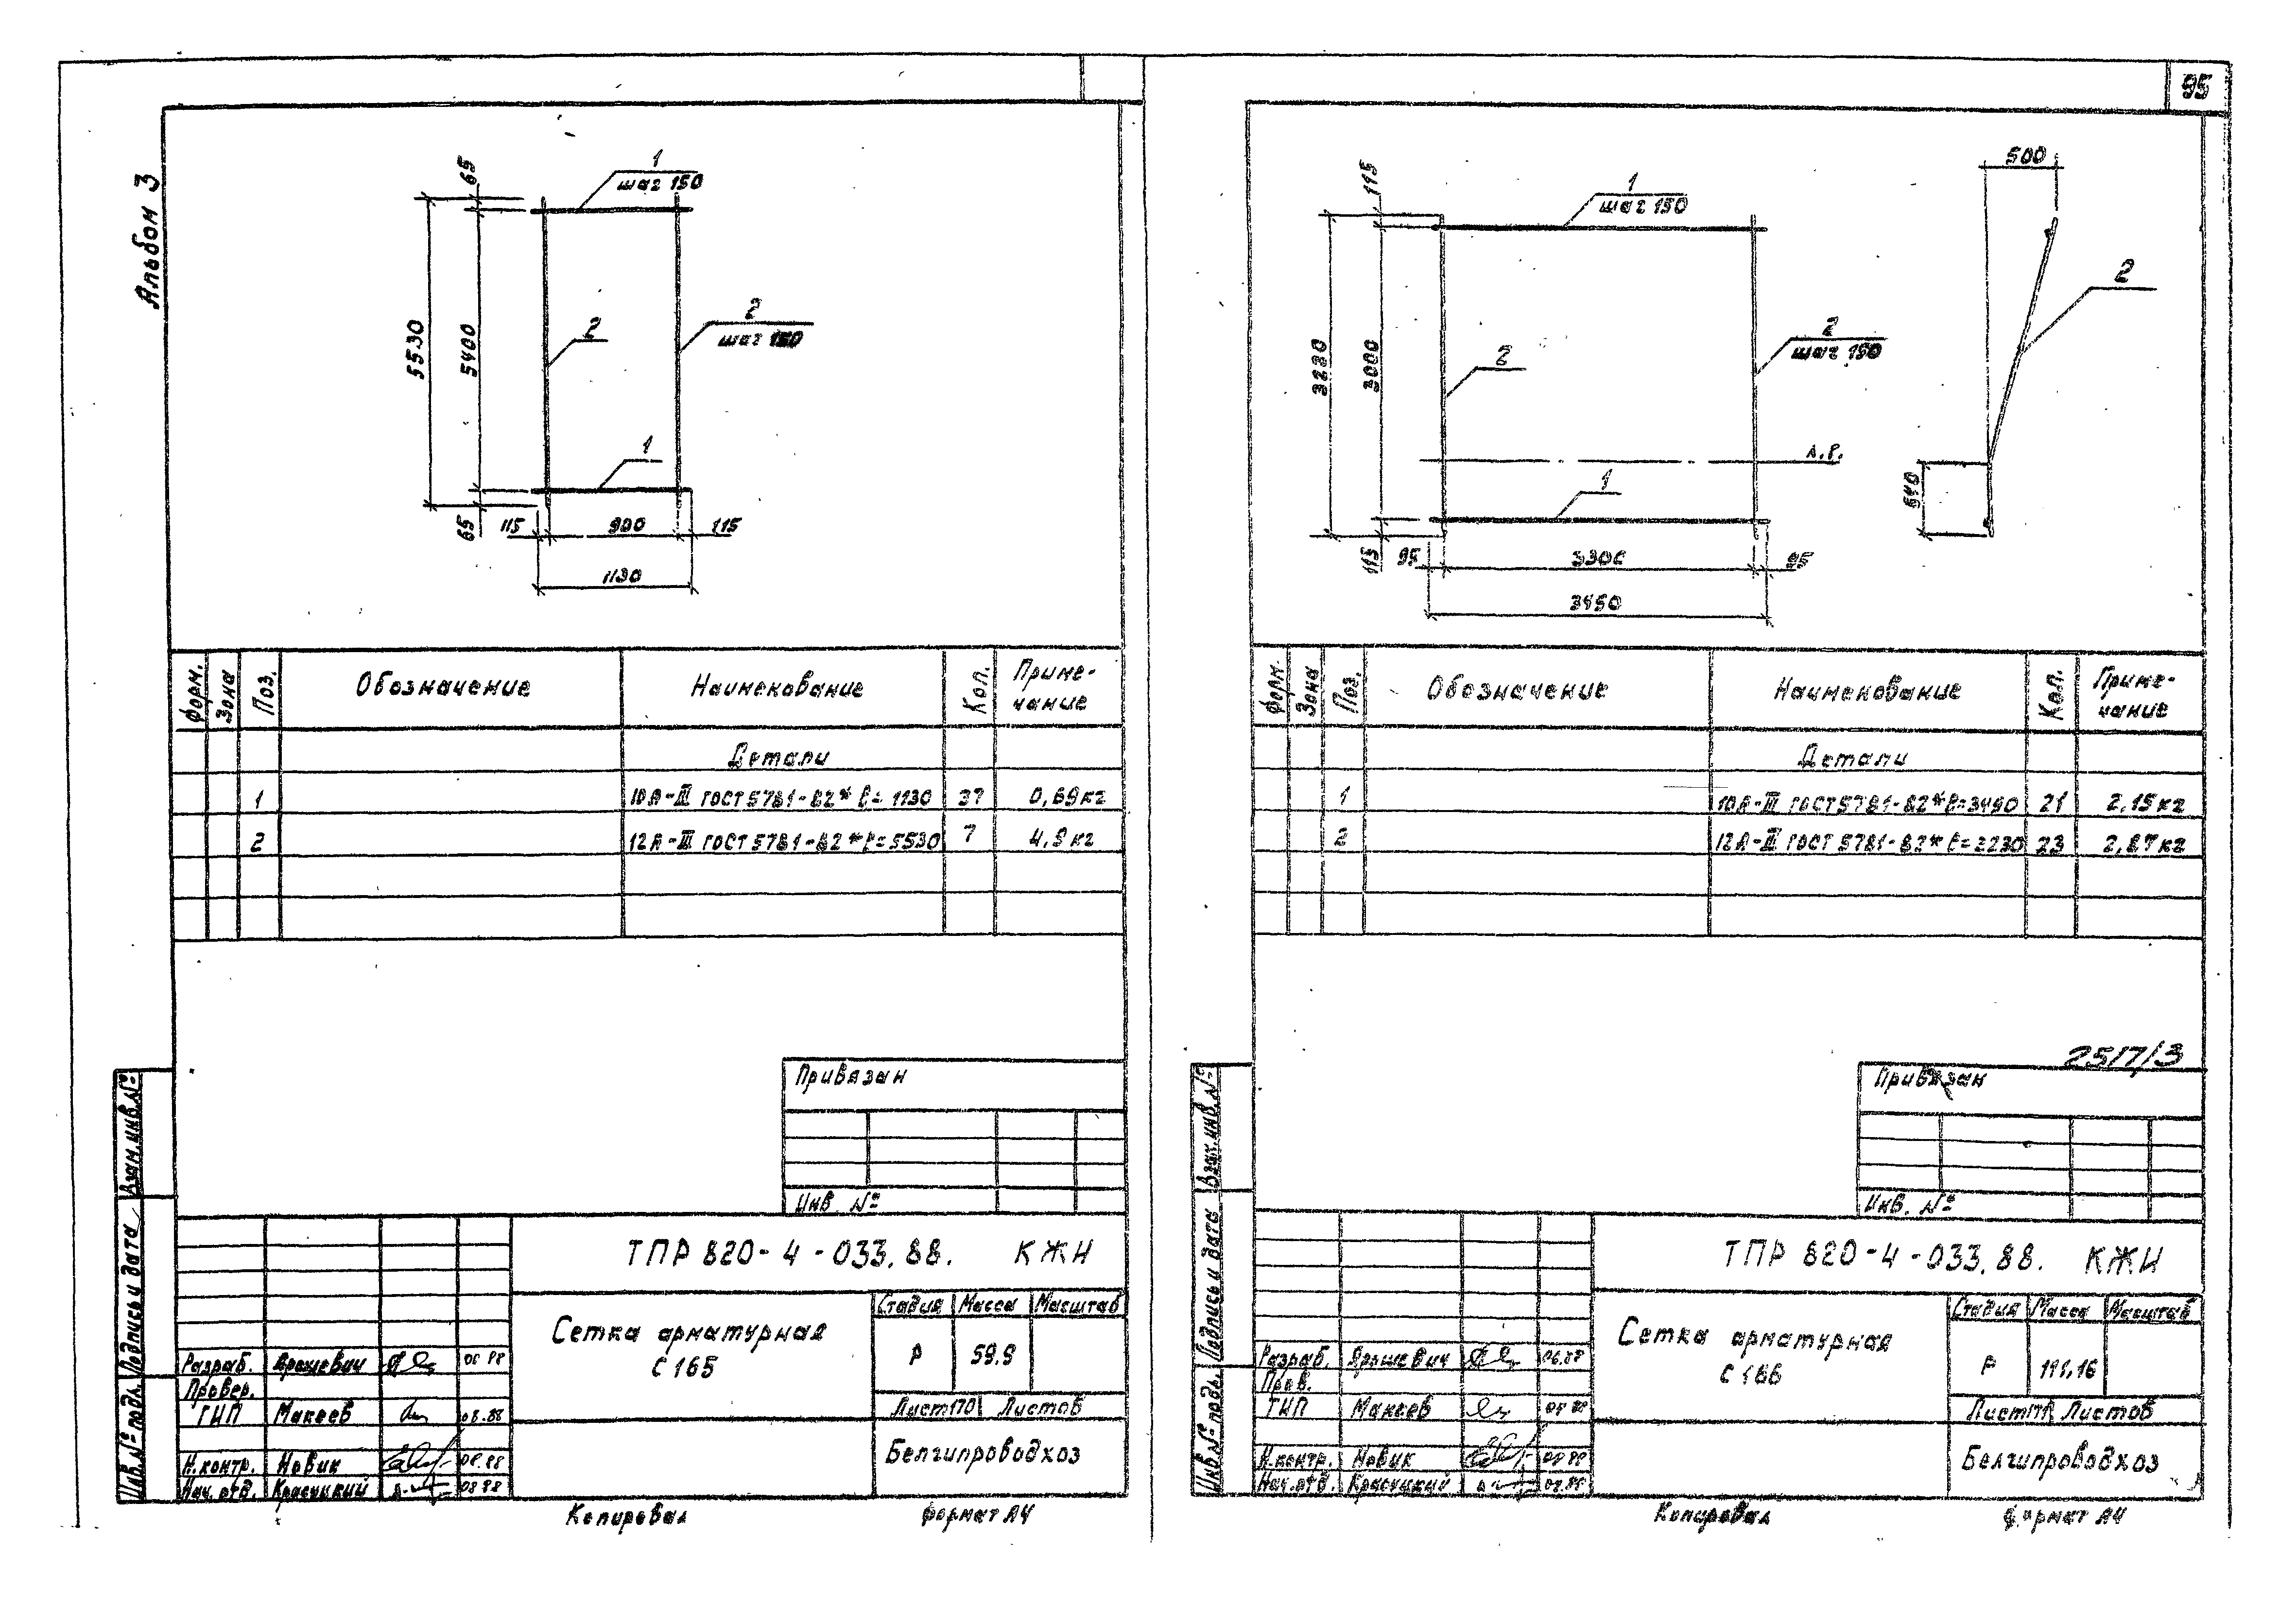 95
Альбом 3
65
1
шаг 150
5530
5400
2
2
шаг 150
1
65
115
900
115
1130
Форм.
Зона
Поз.
Обозначение
Наименование
Кол.
Приме-
чание
Детали
1
10А-III ГОСТ 5781-82* ℓ=1130
37
0,69кг
2
12А-III ГОСТ 5781-82* ℓ=5530
7
4,9кг
Привязан
Инв №
Взам.инв.№
Подпись и дата
Инв.№ подл.
ТПР 820-4-033.88. КЖИ
Сетка арматурная
С 165
Стадия
Масса
Масштаб
Р
59.9
Лист 170
Листов
Белгипроводхоз
Разраб. Ярошевич
Провер.
ГИП Макеев 08.88
Н.контр. Новик 08.88
Нач.отд. Красицкий 08.88
Копировал
формат А4
115
1
шаг 150
3230
3000
2
2
шаг 150
Л.Р.
1
115
95
3300
95
500
2
540
Форм.
Зона
Поз.
Обозначение
Наименование
Кол.
Приме-
чание
Детали
1
10А-III ГОСТ 5781-82* ℓ=3490
21
2,15кг
2
12А-III ГОСТ 5781-82*
23
2,87кг
2517/3
Привязан
Инв. №
Взам.инв.№
Подпись и дата
Инв.№ подл.
ТПР 820-4-033.88. КЖИ
Сетка арматурная
С 166
Стадия
Масса
Масштаб
Р
111,16
Лист 171
Листов
Белгипроводхоз
Разраб. Ярошевич
Пров.
ГИП Макеев
Н.контр. Новик
Нач.отд. Красицкий
Копировал
формат А4